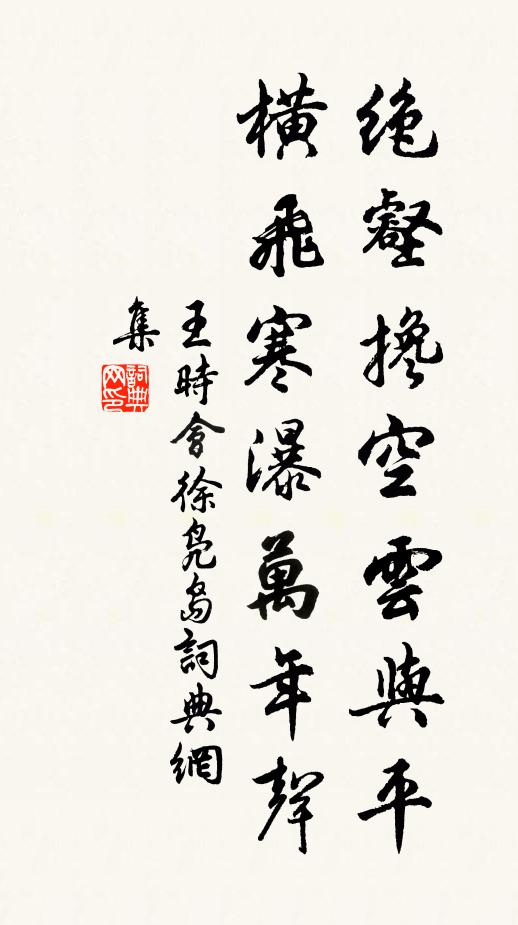 絶壑攙空雲與平
橫飛寒瀑萬年聲
王時會徐鳧島詞典網
集
詞典
网印